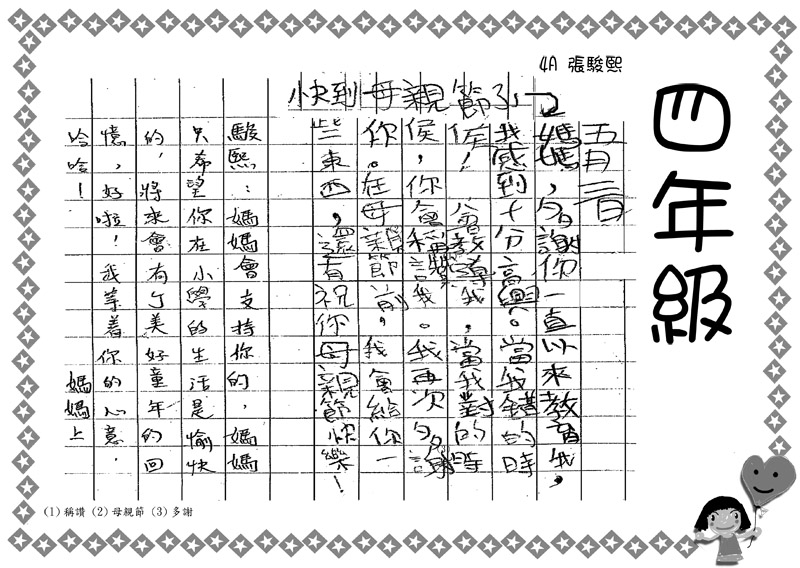 四年級
4A 張駿熙
快到母親節了
五月三日
媽媽，多謝你一直以來教育我，
我感到十分高興。當我錯的時
侯！會教導我，當我對的時
侯，你會稱讚我。我再次多謝
你。在母親節前，我會給你一
些東西，還有祝你母親節快樂！
駿熙：媽媽會支持你的，媽媽
只希望你在小學的生活是愉快
的，將來會有個美好童年的回
憶，好啦！我等着你的心意．
哈哈！
媽媽上
(1) 稱讚 (2) 母親節 (3) 多謝